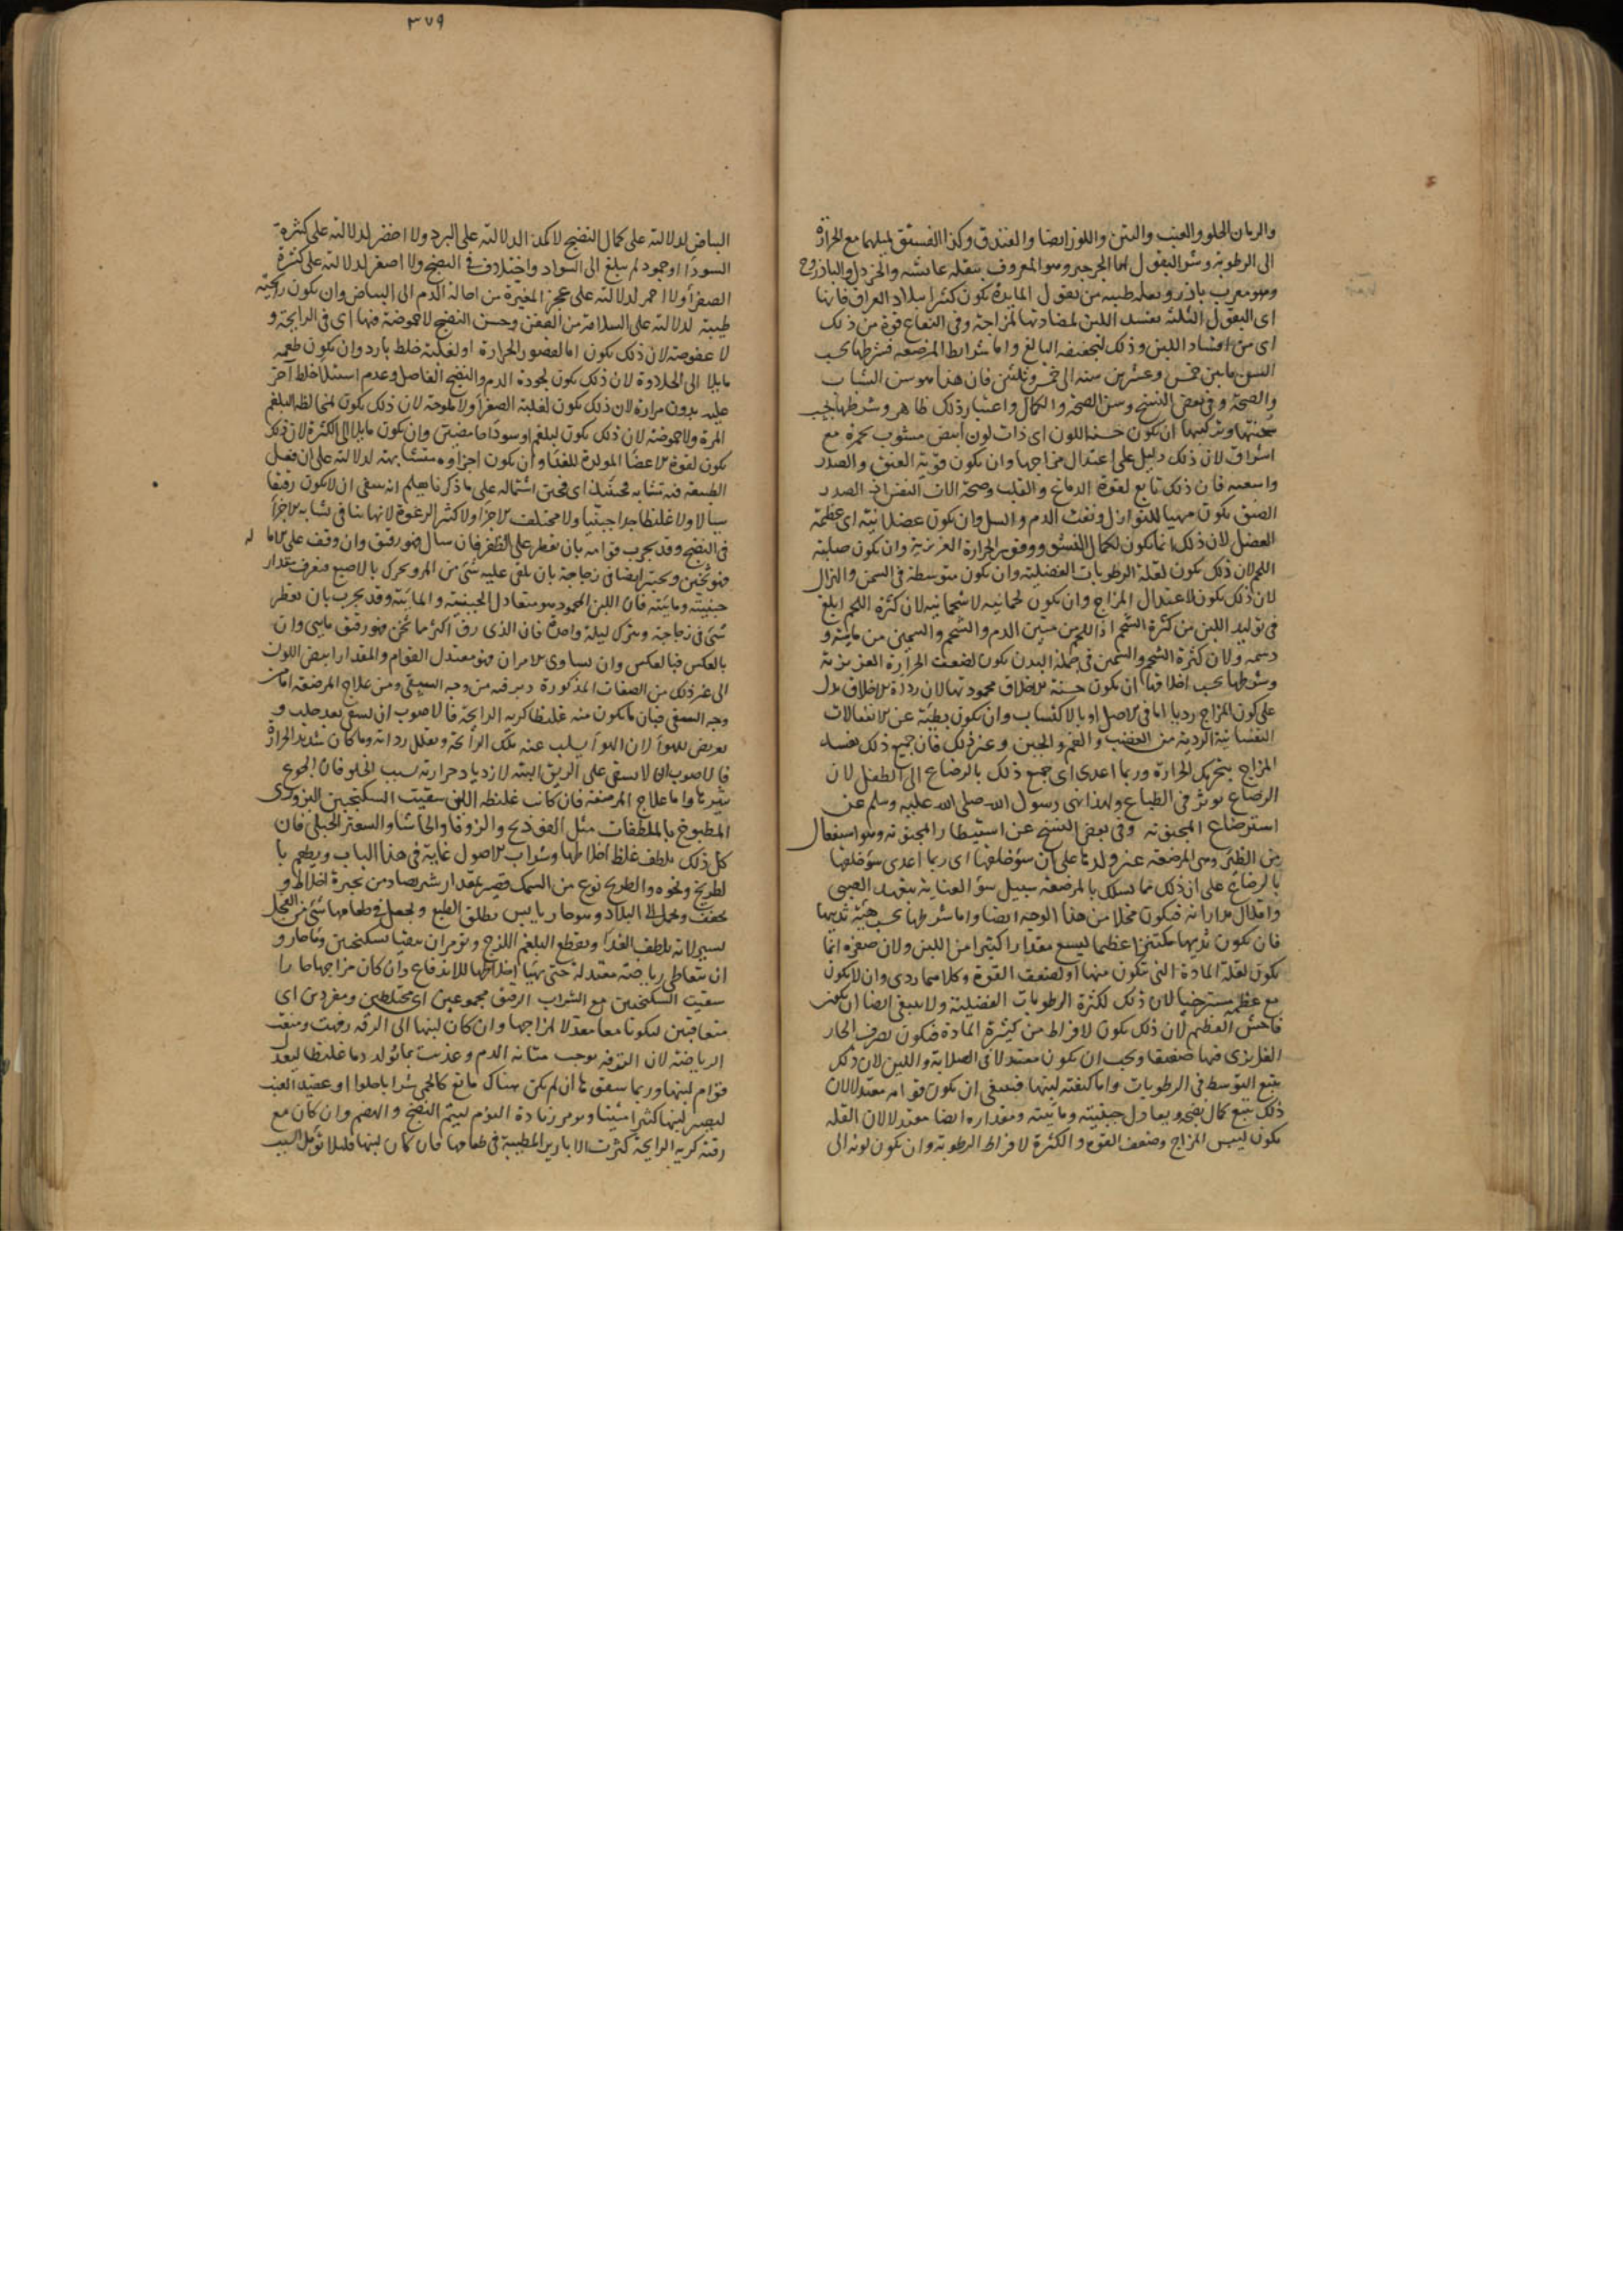 والرمان الحلو والعنب والتين واللوز ايضا والفندق وكذا الفستق لميلهما مع الحرارة
الى الرطوبة وشر البقول لها الجرجير وهو المعروف ببقلة عايشه والخردل والباذروج
وهو معرب باذرو بقلة طيبه من بقول المايدة يكون كثيرا ببلاد العراق فانها
اى البقول الثلثة تفسد اللبن لمضادتها لمزاجه وفى النعناع قوة من ذلك
اى من افساد اللبن وذلك لتجفيفه البالغ واما شرايط المرضعه فشرطها بحسب
السن ما بين خمس وعشرين سنه الى خمس وثلثين فان هذا هو سن الشباب
والصحة وفى بعض النسخ وسن الصحة والكمال واعتبار ذلك ظاهر وشرطها بحسب
سحنتها وتركيبها ان يكون حسنه اللون اى ذات لون ابيض مشوب بحمرة مع
اشراق لان ذلك دليل على اعتدال مزاجها وان يكون قوية العنق والصدر
واسعته فان ذلك تابع لقوة الدماغ والقلب وصحة الات النفس اذ الصدر
الضيق يكون مهيا للنوازل ونفث الدم والسل وان يكون عضلانيه اى عظيمة
العضل لان ذلك انما يكون لكمال النشو ووفور الحرارة الغريزية وان يكون صلبة
اللحم لان ذلك يكون لقلة الرطوبات الفضلية وان يكون متوسطة فى السمن والهزال
لان ذلك يكون لاعتدال المزاج وان يكون لحمانيه لا شحمانيه لان كثرة اللحم ابلغ
فى توليد اللبن من كثرة الشحم اذ اللحم من متين الدم والشحم والسمين من مائيته و
دسمه ولان كثرة الشحم والسمين فى جملة البدن يكون لضعف الحرارة الغريزية
وشرطها بحسب اخلاقها ان يكون حسنة الاخلاق محمودتها لان رداة الاخلاق يدل
على كون المزاج رديا اما فى الاصل او بالاكتساب وان يكون بطيئة عن الانفعالات
النفسانية الردية من الغضب والغم والجبن وغير ذلك فان جميع ذلك يفسد
المزاج بتحريك الحرارة وربما اعدى اى جميع ذلك بالرضاع الى الطفل لان
الرضاع يوثر فى الطباع ولهذا نهى رسول الله صلى الله عليه وسلم عن
استرضاع المجنونه وفى بعض النسخ عن استيظار المجنونه وهو استفعال
من الظئر وهى المرضعه غير ولدها على ان سؤ خلقها اى ربما اعدى سؤ خلقها
بالرضاع على ان ذلك مما يسلك بالمرضعة سبيل سؤ العناية بتعهد الصبى
واقلال مداراته فيكون مخلا من هذا الوجه ايضا واما شرطها بحسب هيئة ثديها
فان يكون ثديها مكتنزا عظيما ليسع مقدارا كثيرا من اللبن ولان صغره انما
يكون لقلة المادة التى يتكون منها او لضعف القوة وكلاهما ردى وان لا يكون
مع عظمه مسترخيا لان ذلك لكثرة الرطوبات الفضلية ولا ينبغى ايضا ان يكون
فاحش العظم لان ذلك يكون لافراط من كثرة المادة فيكون تصرف الحار
الغريزى فيها ضعيفا ويجب ان يكون معتدلا فى الصلابة واللين لان ذلك
يتبع التوسط فى الرطوبات واما كيفية لبنها فينبغى ان يكون قوامه معتدلا لان
ذلك يتبع كمال نضجه ويعادل جبنيته ومائيته ومقداره ايضا معتدلا لان القله
يكون ليبس المزاج وضعف القوه والكثرة لافراط الرطوبة وان يكون لونه الى
٣٧٩
البياض لدلالته على كمال النضج لا كمد الدلالته على البرد ولا اخضر لدلالته على كثرة
السودا او جمود لم يبلغ الى السواد واختلاف فى النضج ولا اصفر لدلالته على كثرة
الصفرأ ولا احمر لدلالته على عجز المغيرة من احالة الدم الى البياض وان يكون رايحته
طيبة لدلالته على السلامة من العفن وحسن النضج لا حموضة فيها اى فى الرايحة و
لا عفوصة لان ذلك يكون اما لقصور الحرارة او لغلبة خلط بارد وان يكون طعمه
مايلا الى الحلاوة لان ذلك يكون لجودة الدم والنضج الفاضل وعدم استيلا خلط آخر
عليه بدون مرارة لان ذلك يكون لغلبة الصفرأ ولا ملوحة لان ذلك يكون لمخالطه البلغم
المرة ولا حموضة لان ذلك يكون لبلغم او سودا حامضين وان يكون مايلا الى الكثرة لان ذلك
يكون لقوة الاعضا المولدة للغذا وان يكون اجزاوه متشابهة لدلالته على ان فعل
الطبيعة فيه تشابه فحينئذ اى فحين اشتماله على ما ذكرنا يعلم انه ينبغى ان لا يكون رقيقا
سيالا ولا غليظا جدا جبنيا ولا مختلف الاجزا ولا كثير الرغوة لانها تنافى تشابه الاجزأ
فى النضج وقد يجرب قوامه بان يقطر على الظفر فان سال فهو رقيق وان وقف على الاماله
فهو ثخين ويجرب ايضا فى زجاجة بان يلقى عليه شئ من المر ويحرك بالاصبع فيعرف مقدار
جبنيته ومائيته فان اللبن المحمود هو متعادل الجبنية والمائية وقد يجرب بان يقطر
شئ فى زجاجة ويترك ليلة واحدة فان الذى رق اكثر مما ثخن فهو رقيق مايى وان
بالعكس فبالعكس وان تساوى الامران فهو معتدل القوام والمقدار ابيض اللون
الى غير ذلك من الصفات المذكورة من وجه السقى ومن علاج المرضعه اما
وجه السقى فبان ما يكون منه غليظا كريه الرايحة فالاصوب ان يسقى بعد حلب و
تعريض للهوأ لان الهوأ يسلب عنه تلك الرأئحة ويقلل رداته وما كان شديد الحرارة
فالاصوب ان لا يسقى على الريق البتة لازدياد حرارته بسبب الخلو فان الجوع
يثيرها واما علاج المرضعة فان كانت غليظه اللبن سقيت السكنجبين البزورى
المطبوخ بالملطفات مثل الفوذنج والزوفا والحاشا والسعتر الجبلى فان
كل ذلك يلطف غلظ اخلاطها وشراب الاصول غاية فى هذا الباب ويطعم با
لطريخ ونحوه والطريخ نوع من السمك قصير بمقدار شبر يصاد من بحيرة اخلاط و
يجفف ويحمل الى البلاد وهو حار يابس يطلق الطبع ويجعل فى طعامها شئ من الفجل
يسير لانه يلطف الغذأ ويقطع البلغم اللزج ويومر ان يتقيا بسكنجبين وما حار و
ان يتعاطى رياضة معتدلة حتى يتهيا اخلاطها للاندفاع وان كان مزاجها حارا
سقيت السكنجبين مع الشراب الرقيق مجموعين اى مختلطين ومفردين اى
متعاقبين ليكونا معا معدلا لمزاجها وان كان لبنها الى الرقه رفهت ومنعت
الرياضة لان الترفه يوجب متانه الدم وغذيت بما يولد دما غليظا ليعدل
قوام لبنها وربما سقوها ان لم يكن هناك مانع كالحمى شرابا حلوا او عقيد العنب
ليصير لبنها كثيرا متينا ويومر بزيادة النوم ليتم النضج والهضم وان كان مع
رقته كريه الرايحة كثرت الابازير المطيبة فى طعامها فان كان لبنها قليلا تؤمل السبب